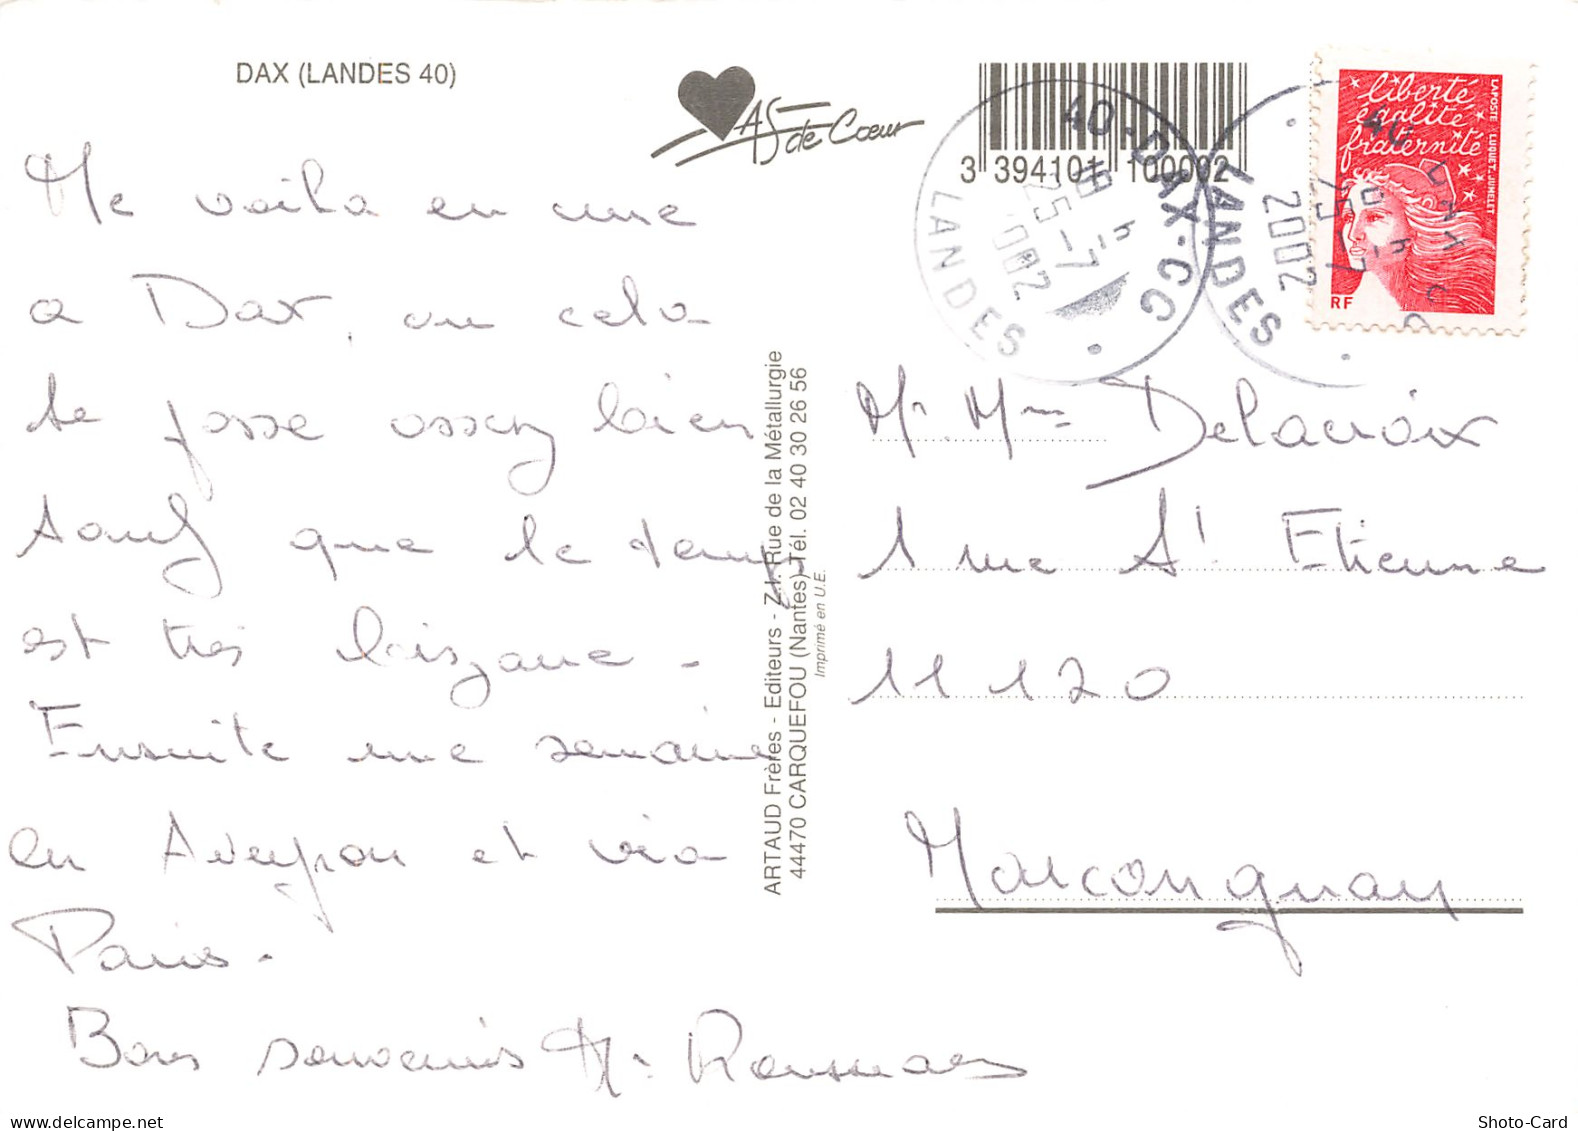 DAX (LANDES 40)
As de Coeur
3 394101 100002
40-DAX-CC
LANDES
25-7
2002
LANDES
2002
liberté
égalité
fraternité
RF
LA POSTE LUQUET.JUMELET
Me voila en cure
a Dax, ou cela
se passe assez bien
sauf que le temps
est très bizarre -
Ensuite une semaine
en Aveyron et via
Paris -
Bons souvenirs Mr
ARTAUD Frères - Editeurs - Z.I. Rue de la Métallurgie
44470 CARQUEFOU (Nantes) Tél. 02 40 30 26 56
Imprimé en U.E.
Mr. Mme Delacroix
1 rue St Etienne
11 120
Shoto-Card